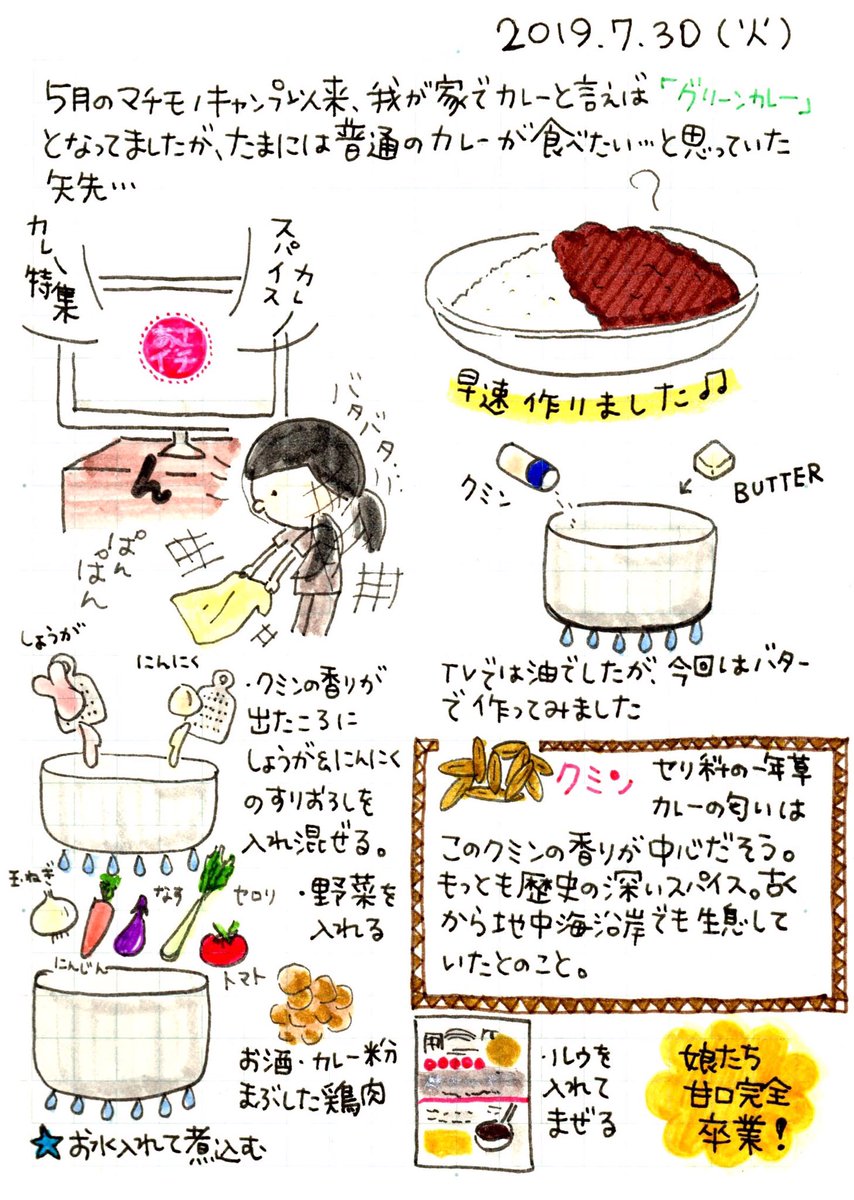 2019.7.30(火)
5月のマチモノキャンプ以来、我が家でカレーと言えば「グリーンカレー」
となってましたが、たまには普通のカレーが食べたい…と思っていた
矢先…
カレー特集
スパイスカレー
あさ
イチ
?
早速作りました♫
バタバタバ…
ん
ぱん
ぱん
クミン
BUTTER
TVでは油でしたが、今回はバター
で作ってみました
しょうが
にんにく
・クミンの香りが
出たころに
しょうが&にんにく
のすりおろしを
入れ混ぜる。
玉ねぎ
にんじん
なす
セロリ
トマト
・野菜を
入れる
お酒・カレー粉
まぶした鶏肉
★お水入れて煮込む
クミン
セリ科の一年草
カレーの匂いは
このクミンの香りが中心だそう。
もっとも歴史の深いスパイス。古く
から地中海沿岸でも生息して
いたとのこと。
・ルウを
入れて
まぜる
娘たち
甘口完全
卒業!